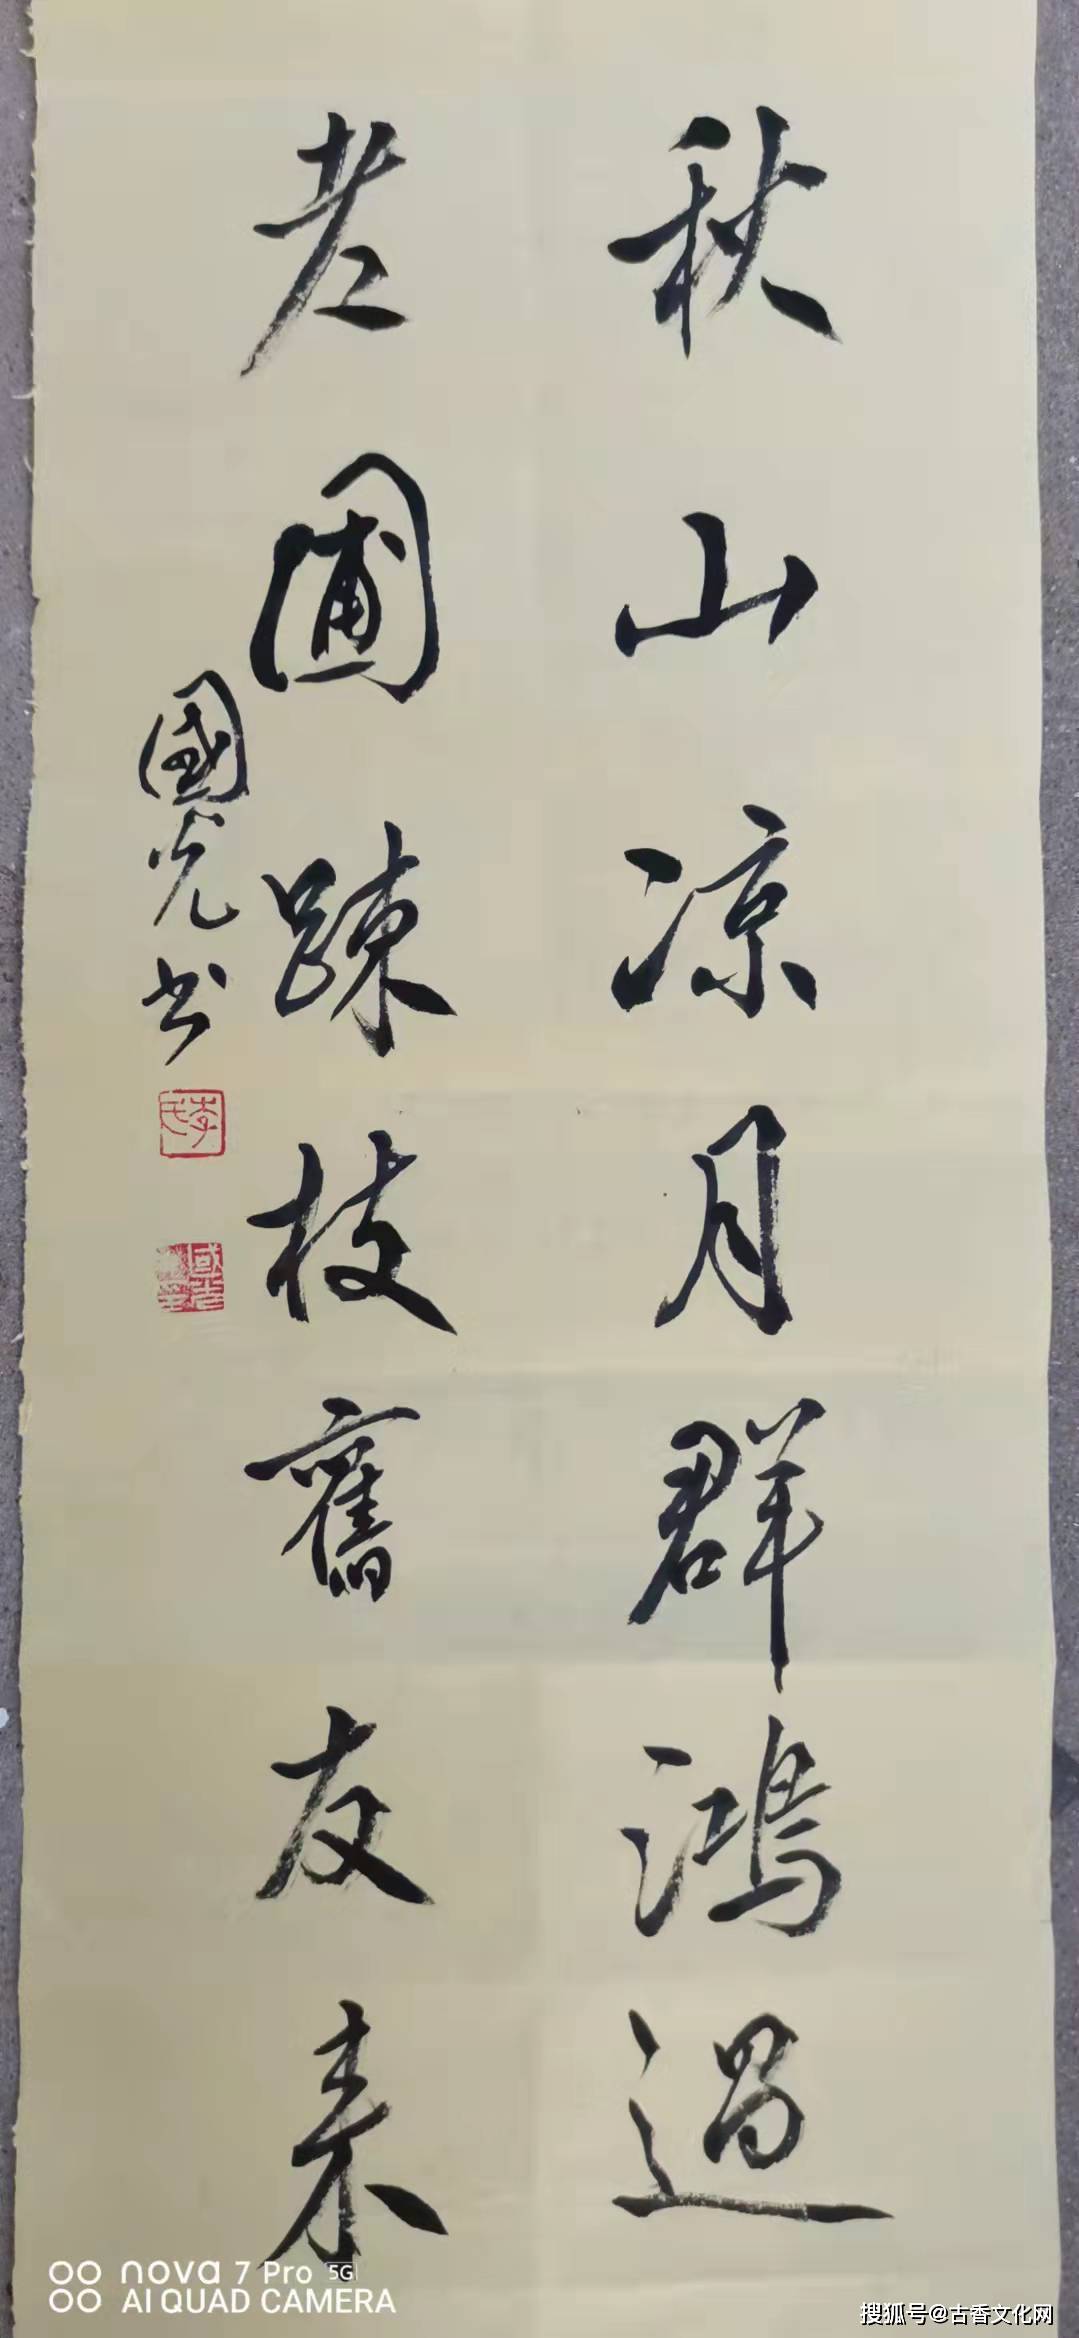 秋山凉月群鸿過
老圃踈枝舊友来
國光书
李氏
nova 7 Pro 5G
AI QUAD CAMERA
搜狐号@古香文化网